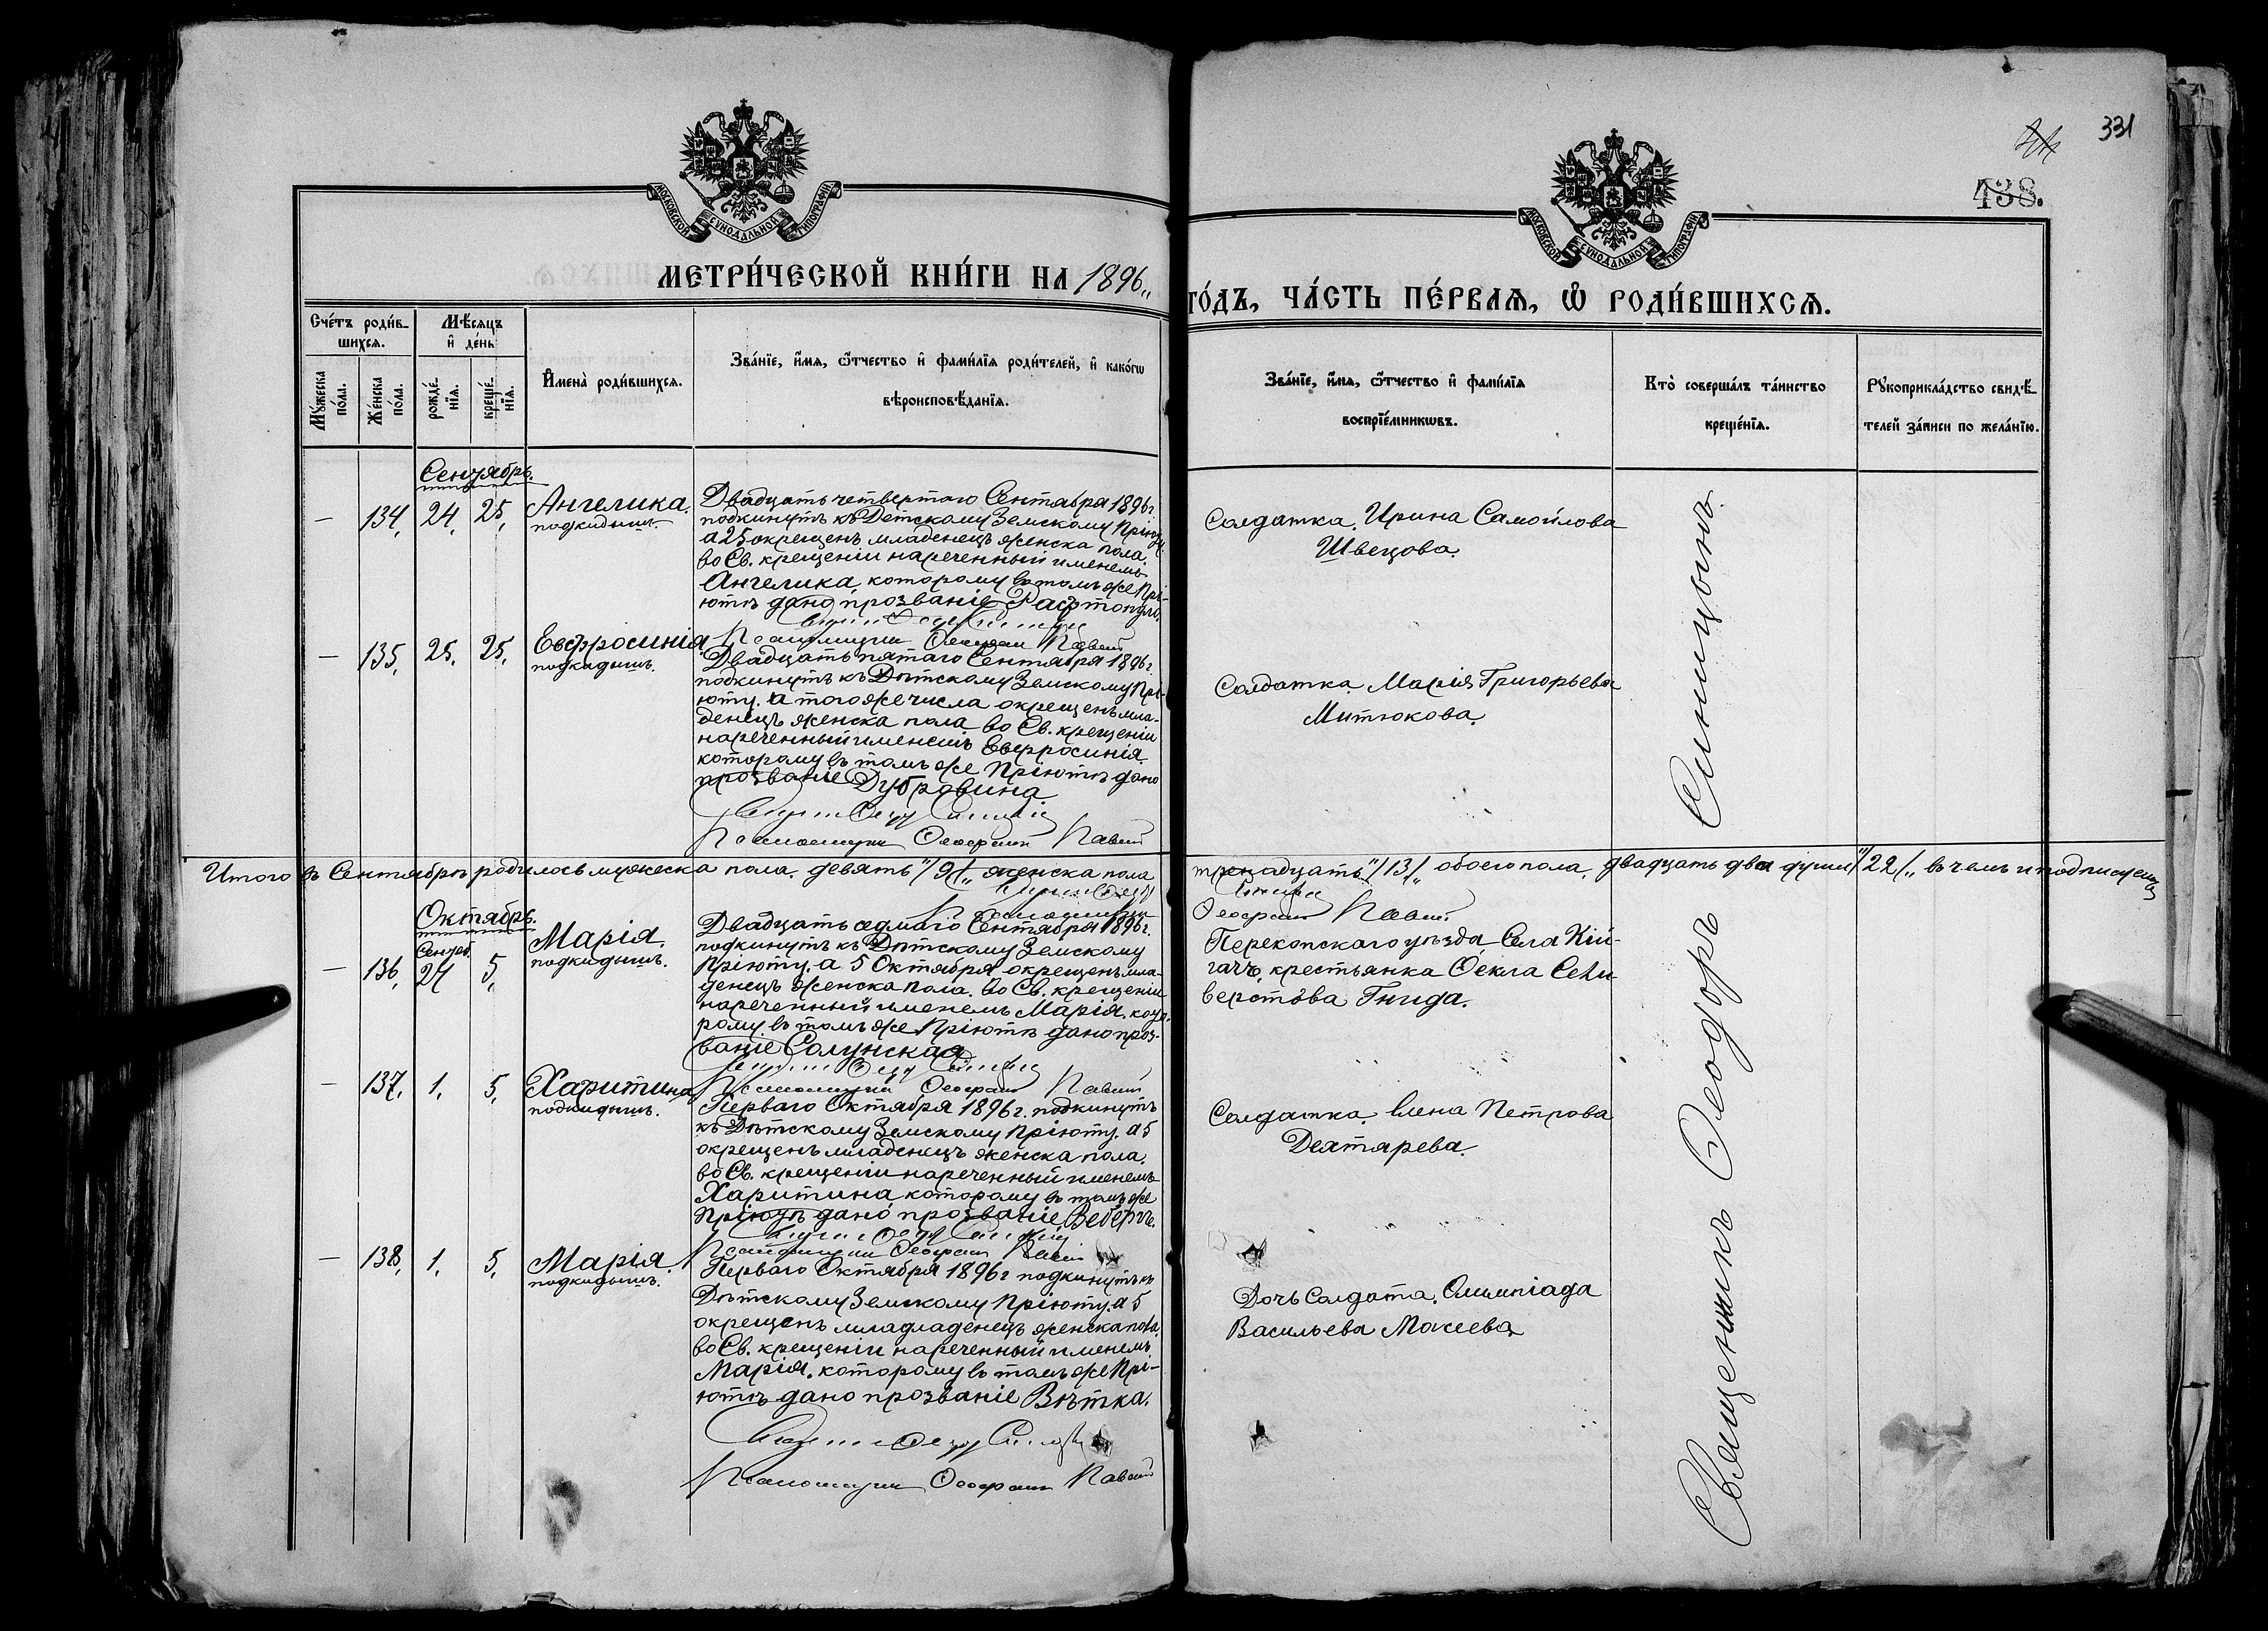 331
438.
МОСКОВСКОЙ СѴНОДАЛЬНОЙ ТИПОГРАФІИ
МОСКОВСКОЙ СѴНОДАЛЬНОЙ ТИПОГРАФІИ
МЕТРИ́ЧЕСКОЙ КНИ́ГИ НА 1896„
ГО́ДЪ, ЧА́СТЬ ПЕ́РВАѦ, Ѽ РОДИ́ВШИХСѦ.
Сче́тъ роди́в-
шихсѧ.
Мѣ́сѧцъ
и҆ де́нь
Мꙋ́жеска
по́ла.
Же́нска
по́ла.
рожде́-
нїѧ.
креще́-
нїѧ.
И҆мена̀ роди́вшихсѧ.
Зва́нїе, и҆́мѧ, ѻ҆́тчество и҆ фами́лїѧ роди́телей, и҆ како́гѡ
вѣроисповѣ́данїѧ.
Зва́нїе, и҆́мѧ, ѻ҆́тчество и҆ фами́лїѧ
воспрїе́мникѡвъ.
Кто̀ соверша́лъ та́инство
креще́нїѧ.
Рꙋкоприкла́дство свидѣ́-
телей за́писи по жела́нїю.
Сентябрь.
— 134, 24, 25, Ангелика.
подкидышъ.
Двадцать четвертаго Сентября 1896 г.
подкинутъ къ Детскому Земскому Пріюту
а 25 окрещенъ младенецъ женска пола,
во Св. крещеніи нареченный именемъ
Ангелика, которому въ томъ же Прі-
ютѣ дано прозваніе
Солдатка, Ирина Самойлова
Швецова.
Псаломщикъ Ѳеофанъ
— 135, 25, 25, Евфросинія
подкидышъ.
Двадцать пятаго Сентября 1896 г.
подкинутъ къ Дѣтскому Земскому Прі-
юту, а того же числа окрещенъ мла-
денецъ женска пола во Св. крещеніи
нареченный именемъ Евфросинія,
которому въ томъ же Пріютѣ дано
прозваніе Дубровина.
Солдатка Марія Григорьева
Митюкова.
Псаломщикъ Ѳеофанъ
Итого въ Сентябрѣ родилось мужеска пола, девять"/9/„ женска пола
тринадцать"/13/„ обоего пола, двадцать два души"/22/„ въ чемъ и подписуемся
Октябрь.
Сентяб.
— 136, 27 5, Марія.
подкидышъ.
Двадцать седмаго Сентября 1896 г.
подкинутъ къ Дѣтскому Земскому
Пріюту, а 5 Октября окрещенъ мла-
денецъ женска пола, во Св. крещеніи
нареченный именемъ Марія, кото-
рому въ томъ же Пріютѣ дано проз-
ваніе Солунская
Перекопскаго уѣзда, Села
крестьянка Ѳекла Сели-
верстова Гнида.
Псаломщикъ Ѳеофанъ
— 137, 1, 5, Харитина
подкидышъ.
Перваго Октября 1896 г. подкинутъ
къ Дѣтскому Земскому Пріюту, а 5
окрещенъ младенецъ женска пола,
во Св. крещеніи нареченный именемъ
Харитина которому въ томъ же
Пріютѣ дано прозваніе
Солдатка, Елена Петрова
Дехтярева.
Псаломщикъ Ѳеофанъ
— 138, 1, 5, Марія.
подкидышъ.
Перваго Октября 1896 г подкинутъ къ
Дѣтскому Земскому Пріюту, а 5
окрещенъ младладенецъ женска пола,
во Св. крещеніи нареченный именемъ
Марія, которому въ томъ же Прі-
ютѣ дано прозваніе Вѣтка.
Дочь Солдата, Олимпіада
Васильева Макеева
Псаломщикъ Ѳеофанъ
Священникъ Ѳеодоръ Синицынъ